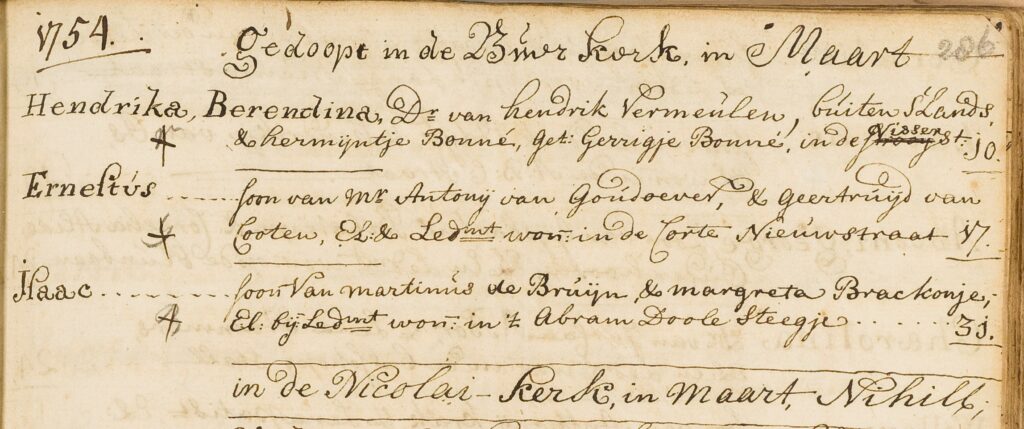 1754. gedoopt in de Buur kerk, in Maart 286
Hendrika, Berendina, Dr van hendrik Vermeulen, buiten SLands,
& hermijntje Bonné, get: Gerrigje Bonné, in de Visser st: 10.
Ernestus ..... soon van Mr Antonij van Goudoever, & geertruijd van
Cooten, El: & Ledmt won: in de Corte Nieuwstraat 17.
Isaac ........ soon Van martinus de Bruijn & margreta Brackonje,
El: bij Ledmt won: in 't Abram Doole Steegje ....... 31.
in de Nicolai-kerk, in maart, Nihill,